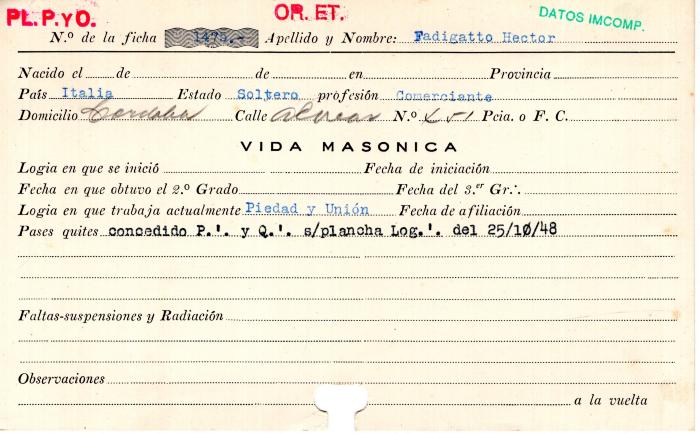 PL.P.yO.
OR.ET.
DATOS IMCOMP.
N.º de la ficha 1475.- Apellido y Nombre: Fadigatto Hector
Nacido el de de en Provincia
País Italia Estado Soltero profesión Comerciante
Domicilio Cordoba Calle Alvear N.º Pcia. o F. C.
VIDA MASONICA
Logia en que se inició Fecha de iniciación
Fecha en que obtuvo el 2.º Grado Fecha del 3.er Gr∴
Logia en que trabaja actualmente Piedad y Unión Fecha de afiliación
Pases quites concedido P.'. y Q.'. s/plancha Log.'. del 25/10/48
Faltas-suspensiones y Radiación
Observaciones
a la vuelta